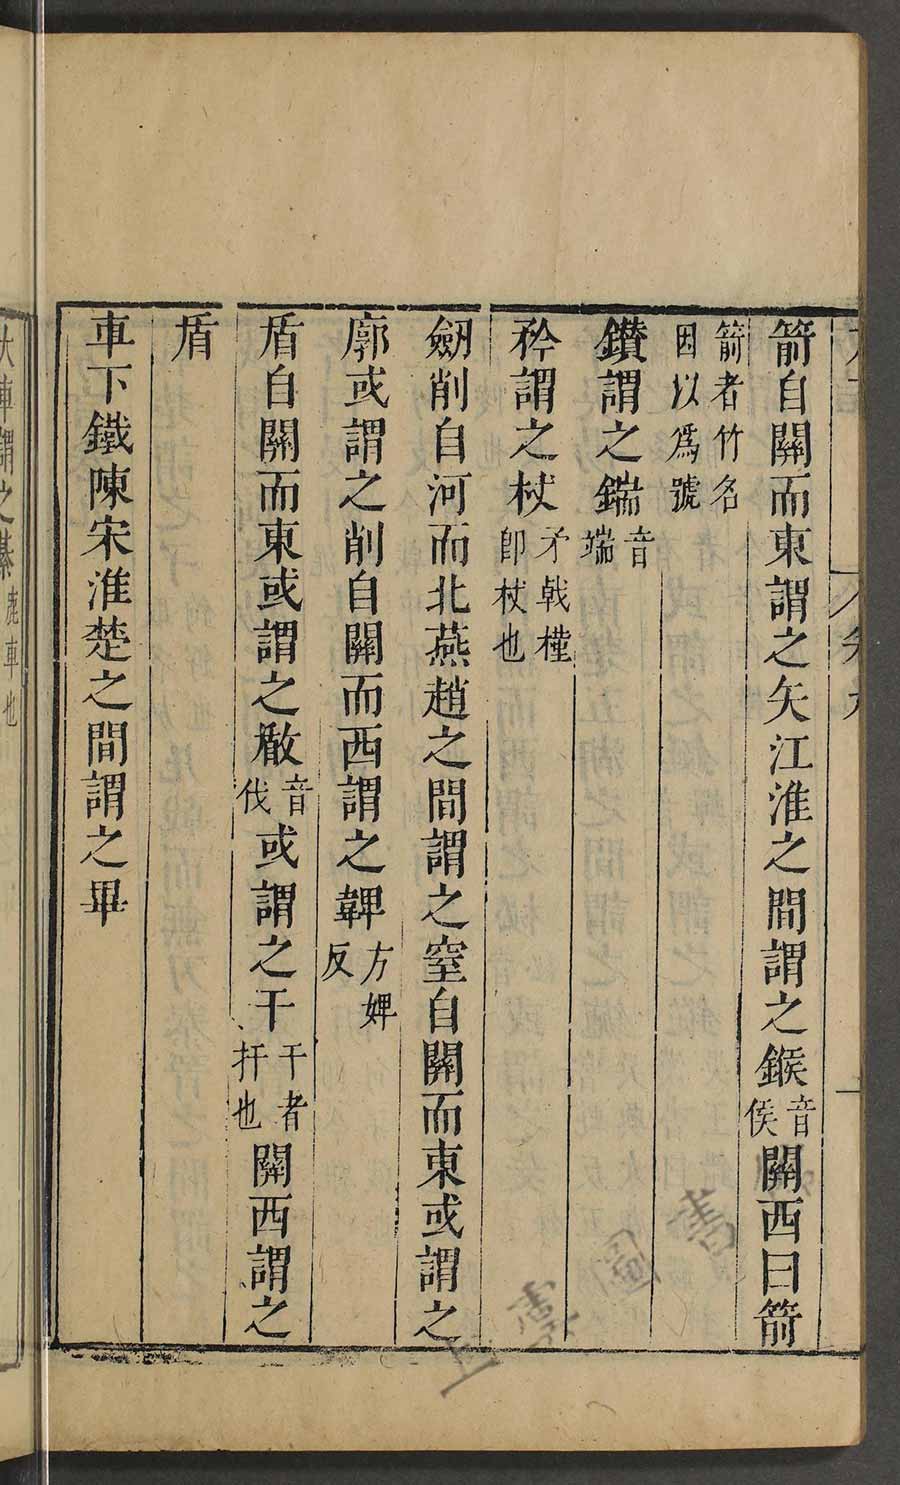 箭自關而東謂之矢江淮之間謂之鍭音侯關西曰箭
箭者竹名因以爲號
鑽謂之鍴音端
矜謂之杖矛戟槿即杖也
劒削自河而北燕趙之間謂之室自關而東或謂之
廓或謂之削自關而西謂之鞞方婢反
盾自關而東或謂之瞂音伐或謂之干干者扞也關西謂之
盾
車下鐵陳宋淮楚之間謂之畢
大車謂之綦鹿車也